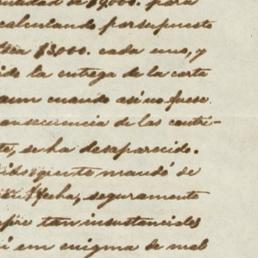 cantidad de $9,000. para
calculando por supuesto
$3,000. cada uno, y
la entrega de la carta
aun cuando asi no fuese.
consecuencia de las contri-
se ha desaparecido.
subsiguiente mandó de
fecha, seguramente
siempre tan insustanciales
i em enigma de mal